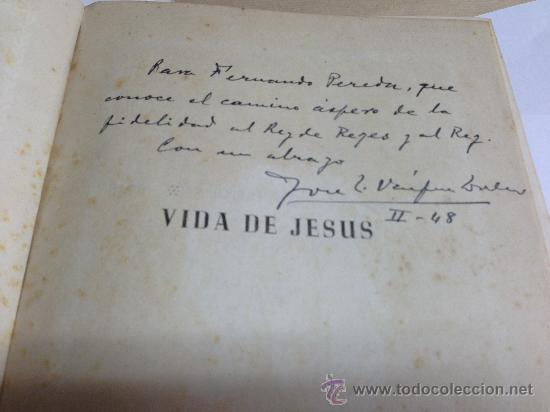 Para Fernando Pereda, que
conoce el camino áspero de la
fidelidad al Rey de Reyes y al Rey.
Con un abrazo
José
VIDA DE JESUS
II-48
todocoleccion
www.todocoleccion.net